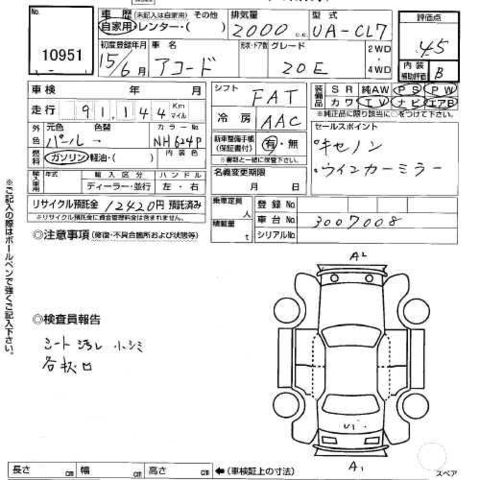 10951
車歴 (未記入は自家用) その他 排気量 型式 評価点
自家用・レンター・( ) 2000 cc UA-CL7 4.5
初度登録年月 車名 形状・ドア数 グレード 2WD
15/6月 アコード 20E ・4WD
内装補助評価 B
車検 年 月 シフト FAT 装備品 SR 純AW PS PW
カワ TV ナビ エアB
走行 91,144 Km マイル 冷房 AAC *純正品に限り該当に○をつけて下さい
外色 元色 色替 カラーNo セールスポイント
パール ー NH624P 新車整備手帳(保証書付) 有・無 °キセノン
燃料 ガソリン・軽油・( ) 内装色 *書類と一緒に後送ください °ウインカーミラー
輸入車用 年式 輸入区分 ハンドル 名義変更期限
ディーラー・並行 左・右 月 日
リサイクル預託金 12420円 預託済み 乗車定員 人 登録No
※リサイクル預託金に資金管理料金は含まれません 積載量 t 車台No 3007008
◎注意事項 (修復・不具合箇所および状態等) シリアルNo
※ご記入の際はボールペンで強くご記入下さい。
A2
◎検査員報告
シート汚レ 小シミ
A1
長さ cm 幅 cm 高さ cm ←(車検証上の寸法) スペア